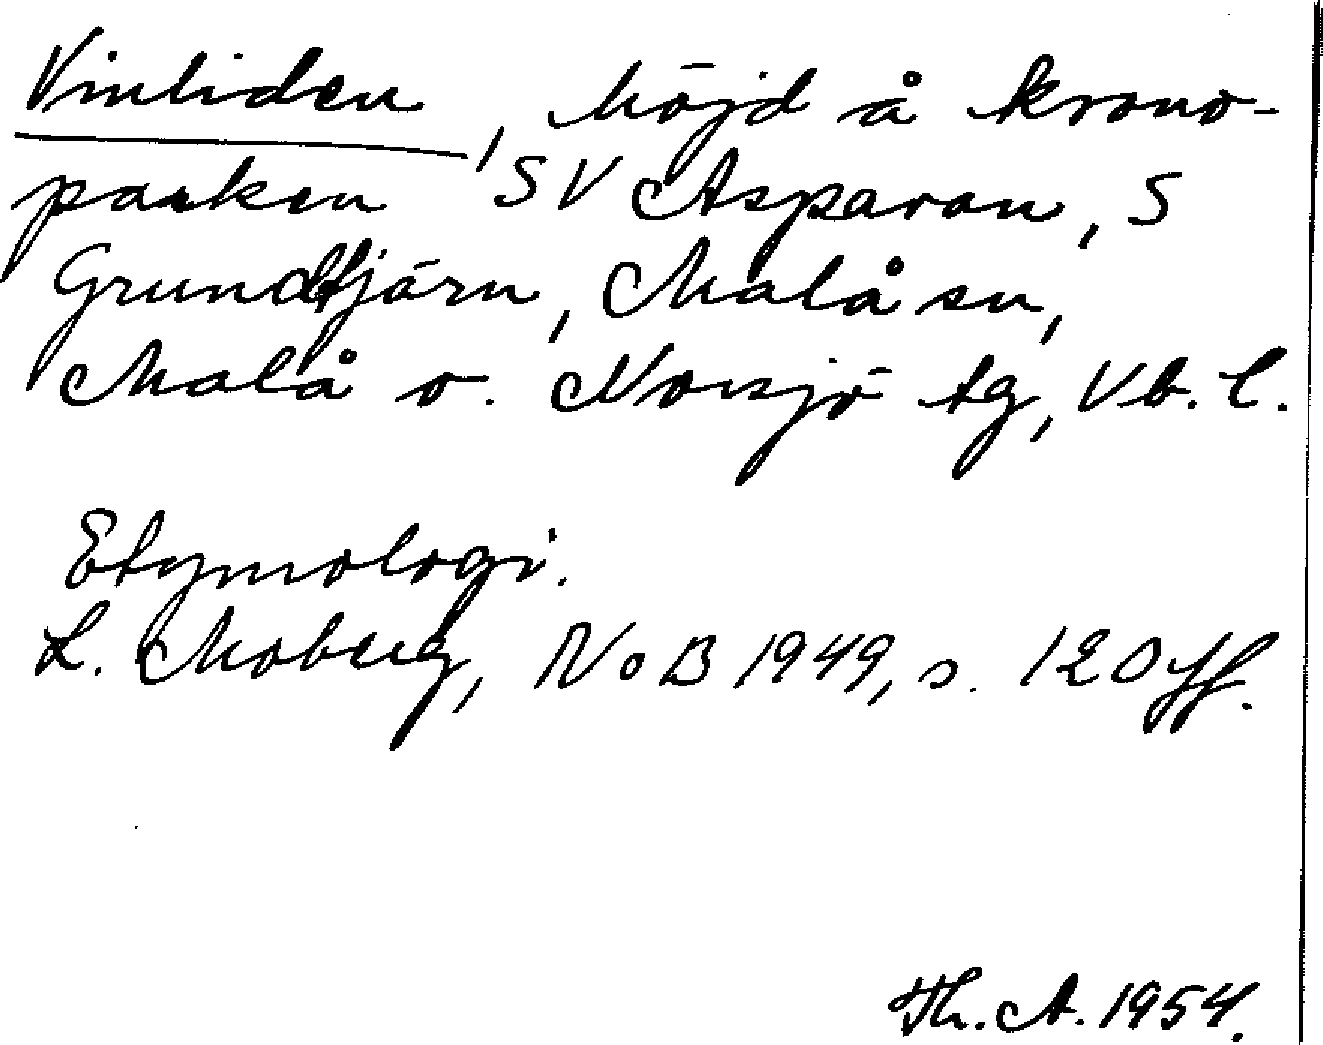 Vinliden, höjd å krono-
parken SV Asparan, S
Grundtjärn, Malå sn,
Malå o. Norsjö tg, Vb. l.
Etymologi.
L. Moberg, NoB 1949, s. 120 ff.
Th. A. 1954.